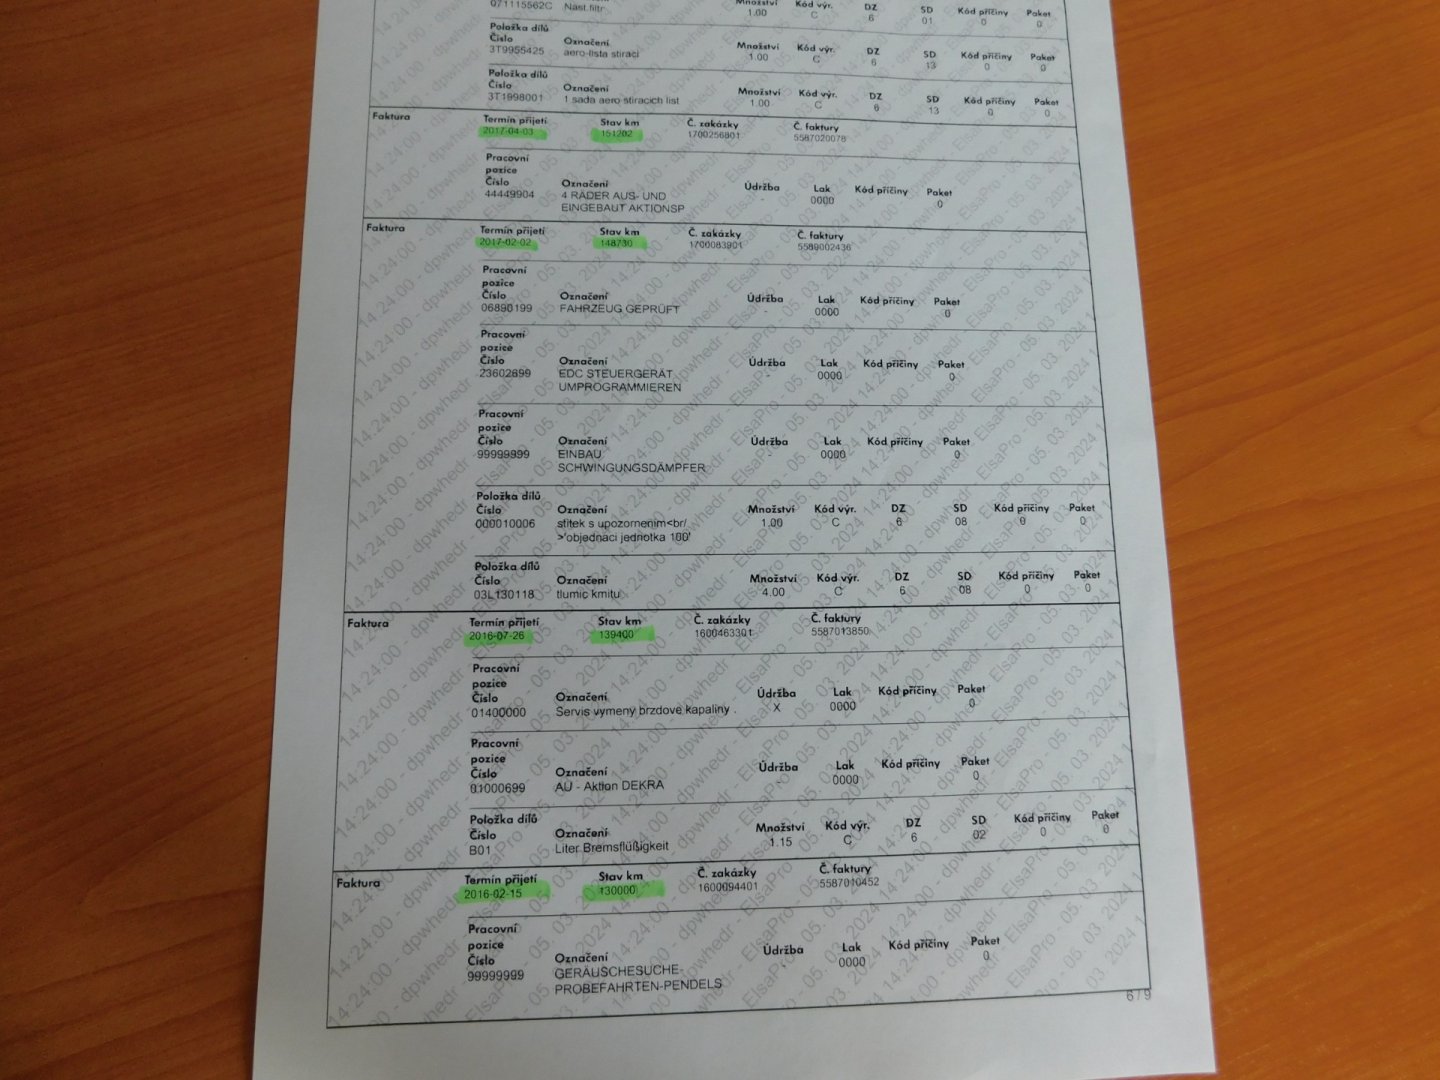 071115562C Nast.filtr. Množství 1.00 Kód výr. C DZ 6 SD 01 Kód příčiny 0 Paket 0
Položka dílů
Číslo Označení Množství Kód výr. DZ SD Kód příčiny Paket
3T9955425 aero-lista stiraci 1.00 C 6 13 0 0
Položka dílů
Číslo Označení Množství Kód výr. DZ SD Kód příčiny Paket
3T1998001 1 sada aero stiracich list 1.00 C 6 13 0 0
Faktura Termín přijetí Stav km Č. zakázky Č. faktury
2017-04-03 151202 1700256801 5587020078
Pracovní
pozice
Číslo Označení Údržba Lak Kód příčiny Paket
44449904 4 RÄDER AUS- UND - 0000 0
EINGEBAUT AKTIONSP
Faktura Termín přijetí Stav km Č. zakázky Č. faktury
2017-02-02 148730 1700083901 5589002436
Pracovní
pozice
Číslo Označení Údržba Lak Kód příčiny Paket
06890199 FAHRZEUG GEPRÜFT - 0000 0
Pracovní
pozice
Číslo Označení Údržba Lak Kód příčiny Paket
23602699 EDC STEUERGERÄT - 0000 0
UMPROGRAMMIEREN
Pracovní
pozice
Číslo Označení Údržba Lak Kód příčiny Paket
99999999 EINBAU - 0000 0
SCHWINGUNGSDÄMPFER
Položka dílů
Číslo Označení Množství Kód výr. DZ SD Kód příčiny Paket
000010006 stitek s upozornenim<br/ 1.00 C 6 08 0 0
>'objednaci jednotka 100'
Položka dílů
Číslo Označení Množství Kód výr. DZ SD Kód příčiny Paket
03L130118 tlumic kmitu 4.00 C 6 08 0 0
Faktura Termín přijetí Stav km Č. zakázky Č. faktury
2016-07-26 139400 1600463301 5587013850
Pracovní
pozice
Číslo Označení Údržba Lak Kód příčiny Paket
01400000 Servis vymeny brzdove kapaliny . X 0000 0
Pracovní
pozice
Číslo Označení Údržba Lak Kód příčiny Paket
01000699 AU - Aktion DEKRA - 0000 0
Položka dílů
Číslo Označení Množství Kód výr. DZ SD Kód příčiny Paket
B01 Liter Bremsflüßigkeit 1.15 C 6 02 0 0
Faktura Termín přijetí Stav km Č. zakázky Č. faktury
2016-02-15 130000 1600094401 5587010452
Pracovní
pozice
Číslo Označení Údržba Lak Kód příčiny Paket
99999999 GERÄUSCHESUCHE- - 0000 0
PROBEFAHRTEN-PENDELS
6 / 9
14:24:00 - dpwhedr - ElsaPro - 05. 03. 2024 14:24:00 - dpwhedr - ElsaPro - 05. 03. 2024